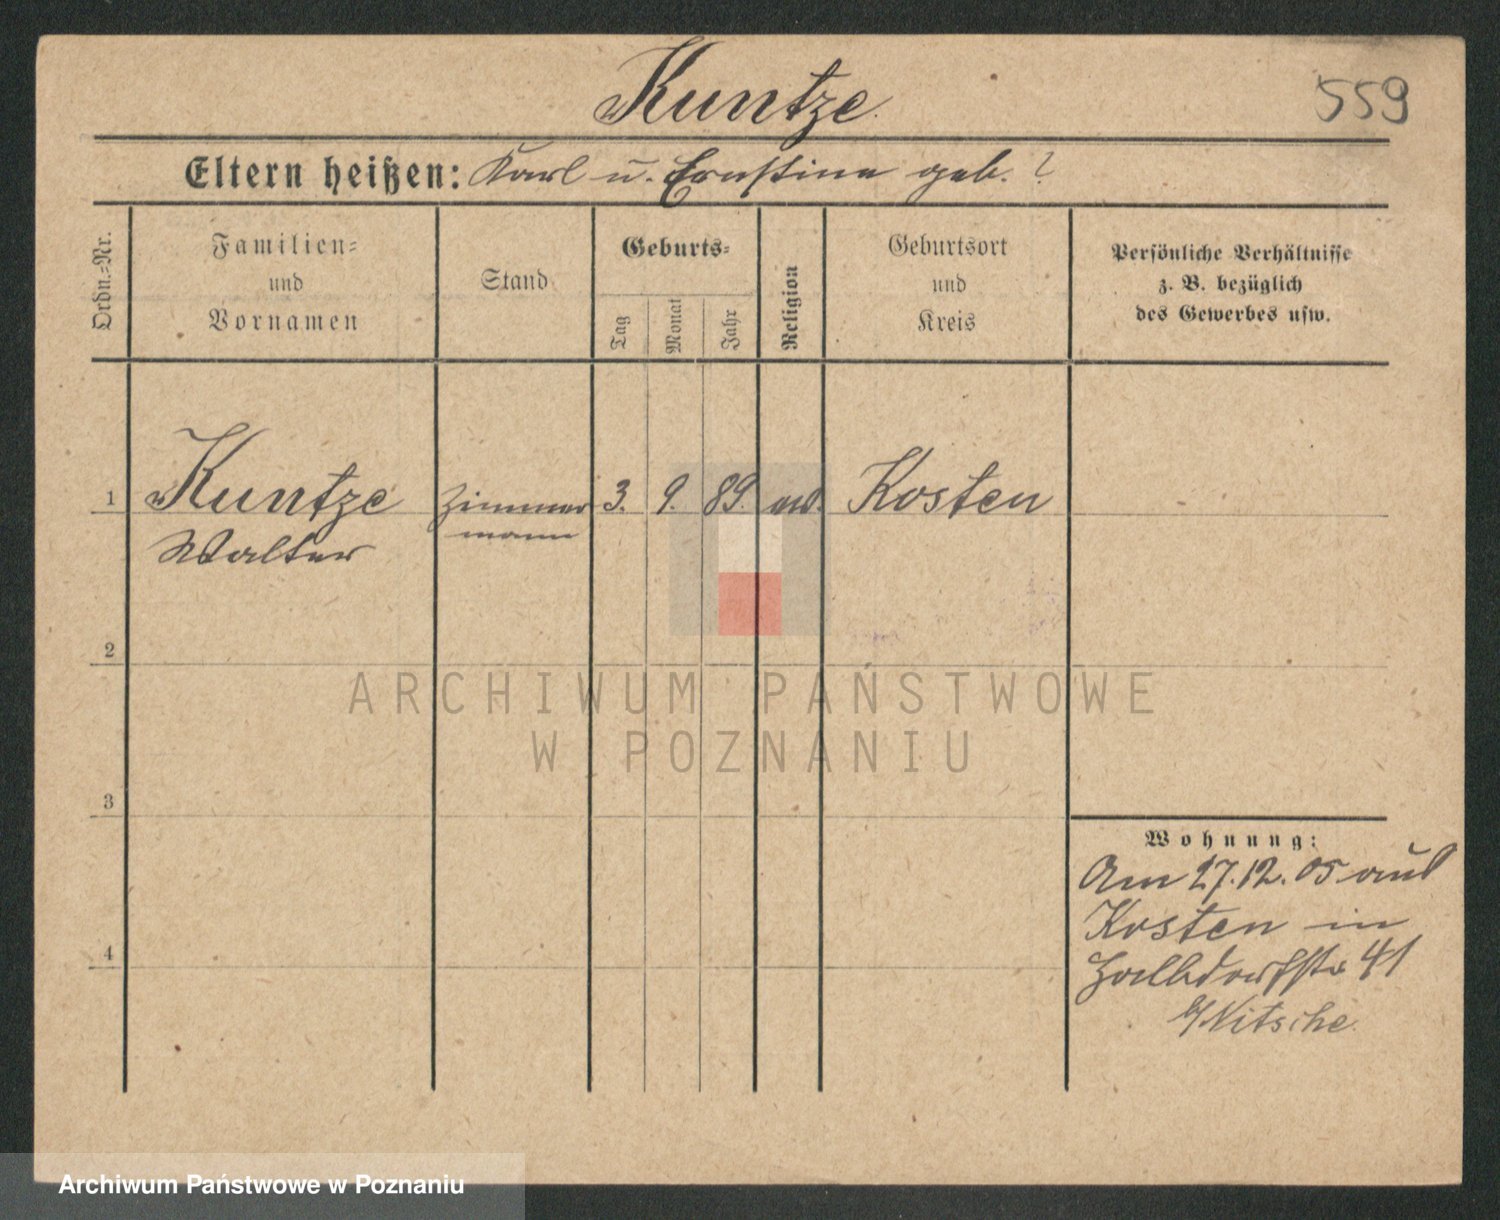 Kuntze
559
Eltern heißen: Karl u. Ernstine geb. ?
Ordn.=Nr.
Familien=
und
Vornamen
Stand
Geburts=
Tag
Monat
Jahr
Religion
Geburtsort
und
Kreis
Persönliche Verhältnisse
z. B. bezüglich
des Gewerbes usw.
1 Kuntze Zimmer 3. 9. 89. Kosten
Walter mann
2
ARCHIWUM PAŃSTWOWE
W POZNANIU
3
Wohnung:
Am 27.12.05 aus
Kosten in
41
b/Nitsche.
4
Archiwum Państwowe w Poznaniu